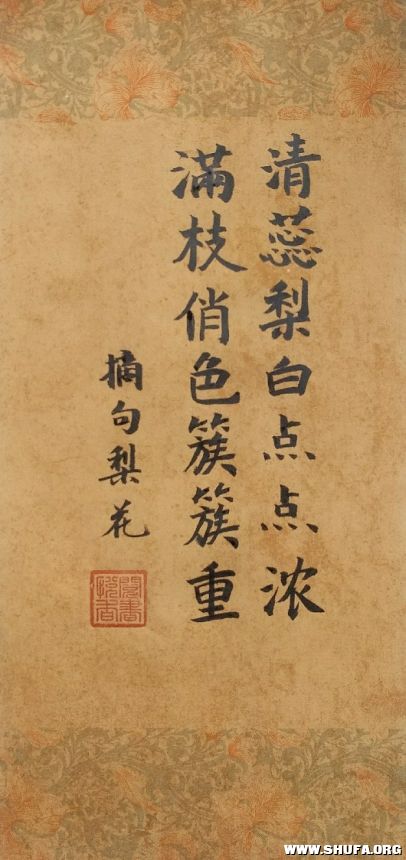 清蕊梨白点点浓
满枝俏色簇簇重
摘句梨花
WWW.SHUFA.ORG